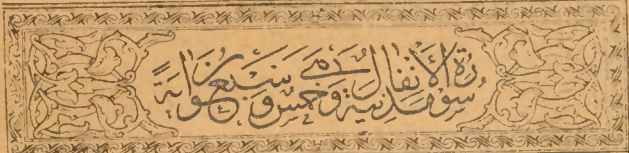 سورة الأنفال مدنية وهي خمس وسبعون آية